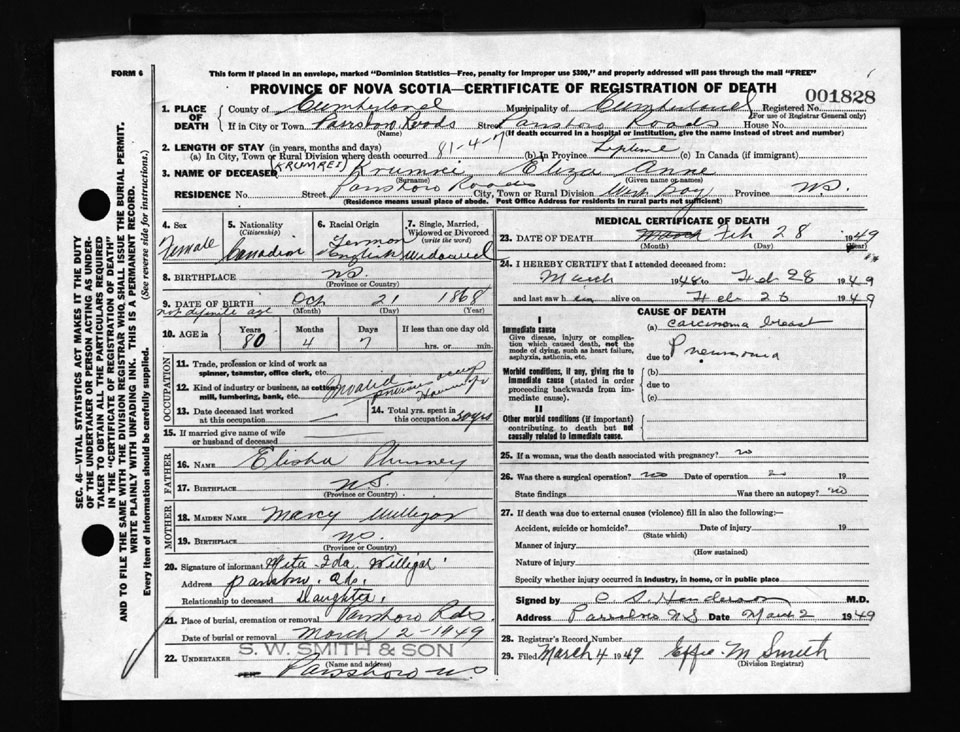 FORM 6
This form if placed in an envelope, marked "Dominion Statistics—Free, penalty for improper use $300," and properly addressed will pass through the mail "FREE"
PROVINCE OF NOVA SCOTIA—CERTIFICATE OF REGISTRATION OF DEATH
001828
1. PLACE OF DEATH County of Cumberland Municipality of Cumberland Registered No.
(For use of Registrar General only)
If in City or Town Parrsboro Roads Street Parrsboro Roads House No.
(Name) (If death occurred in a hospital or institution, give the name instead of street and number)
2. LENGTH OF STAY (in years, months and days)
(a) In City, Town or Rural Division where death occurred 81-4-7 (b) In Province Lifetime (c) In Canada (if immigrant)
3. NAME OF DECEASED (KRUMREI) Krumrei Eliza Anne
(Surname) (Given name or names)
RESIDENCE No. Street Parrsboro Roads City, Town or Rural Division West Bay Province N.S.
(Residence means usual place of abode. Post Office Address for residents in rural parts not sufficient)
4. Sex Female
5. Nationality (Citizenship) Canadian
6. Racial Origin German English
7. Single, Married, Widowed or Divorced (write the word) Widowed
8. BIRTHPLACE N.S.
(Province or Country)
9. DATE OF BIRTH Oct 21 1868
not definite age (Month) (Day) (Year)
10. AGE in Years 80 Months 4 Days 7 If less than one day old
hrs. or min.
OCCUPATION
11. Trade, profession or kind of work as spinner, teamster, office clerk, etc.
12. Kind of industry or business, as cotton mill, lumbering, bank, etc. Invalid previous occup
13. Date deceased last worked at this occupation —
14. Total yrs. spent in this occupation 50 yrs
15. If married give name of wife or husband of deceased —
FATHER
16. NAME Elisha Phinney
17. BIRTHPLACE N.S.
(Province or Country)
MOTHER
18. MAIDEN NAME Marcy Milligar
19. BIRTHPLACE N.S.
(Province or Country)
20. Signature of informant Ida Willigar
Address Parrsboro Rds.
Relationship to deceased Daughter
21. Place of burial, cremation or removal Parrsboro Rds.
Date of burial or removal March 2-1949
S. W. SMITH & SON
22. UNDERTAKER (Name and address)
Parrsboro N.S
MEDICAL CERTIFICATE OF DEATH
23. DATE OF DEATH March Feb 28 1949
(Month) (Day) (Year)
24. I HEREBY CERTIFY that I attended deceased from:
March 1948 to Feb 28 1949
and last saw h er alive on Feb 26 1949
CAUSE OF DEATH
I
Immediate cause
Give disease, injury or complication which caused death, not the mode of dying, such as heart failure, asphyxia, asthenia, etc.
(a) Carcinoma breast
due to Pneumonia
Morbid conditions, if any, giving rise to immediate cause (stated in order proceeding backwards from immediate cause).
(b)
due to
(c)
II
Other morbid conditions (if important) contributing to death but not causally related to immediate cause.
25. If a woman, was the death associated with pregnancy? no
26. Was there a surgical operation? no Date of operation 19
State findings Was there an autopsy? no
27. If death was due to external causes (violence) fill in also the following:—
Accident, suicide or homicide? Date of injury 19
(State which)
Manner of injury
(How sustained)
Nature of injury
Specify whether injury occurred in industry, in home, or in public place
Signed by C S Henderson M.D.
Address Parrsboro N.S Date March 2 1949
28. Registrar's Record Number
29. Filed March 4 1949 Effie M Smith
(Division Registrar)
SEC. 46—VITAL STATISTICS ACT MAKES IT THE DUTY
OF THE UNDERTAKER OR PERSON ACTING AS UNDER-
TAKER TO OBTAIN ALL THE PARTICULARS REQUIRED
IN THE "CERTIFICATE OF REGISTRATION OF DEATH"
AND TO FILE THE SAME WITH THE DIVISION REGISTRAR WHO SHALL ISSUE THE BURIAL PERMIT.
WRITE PLAINLY WITH UNFADING INK. THIS IS A PERMANENT RECORD.
Every item of information should be carefully supplied. (See reverse side for instructions.)